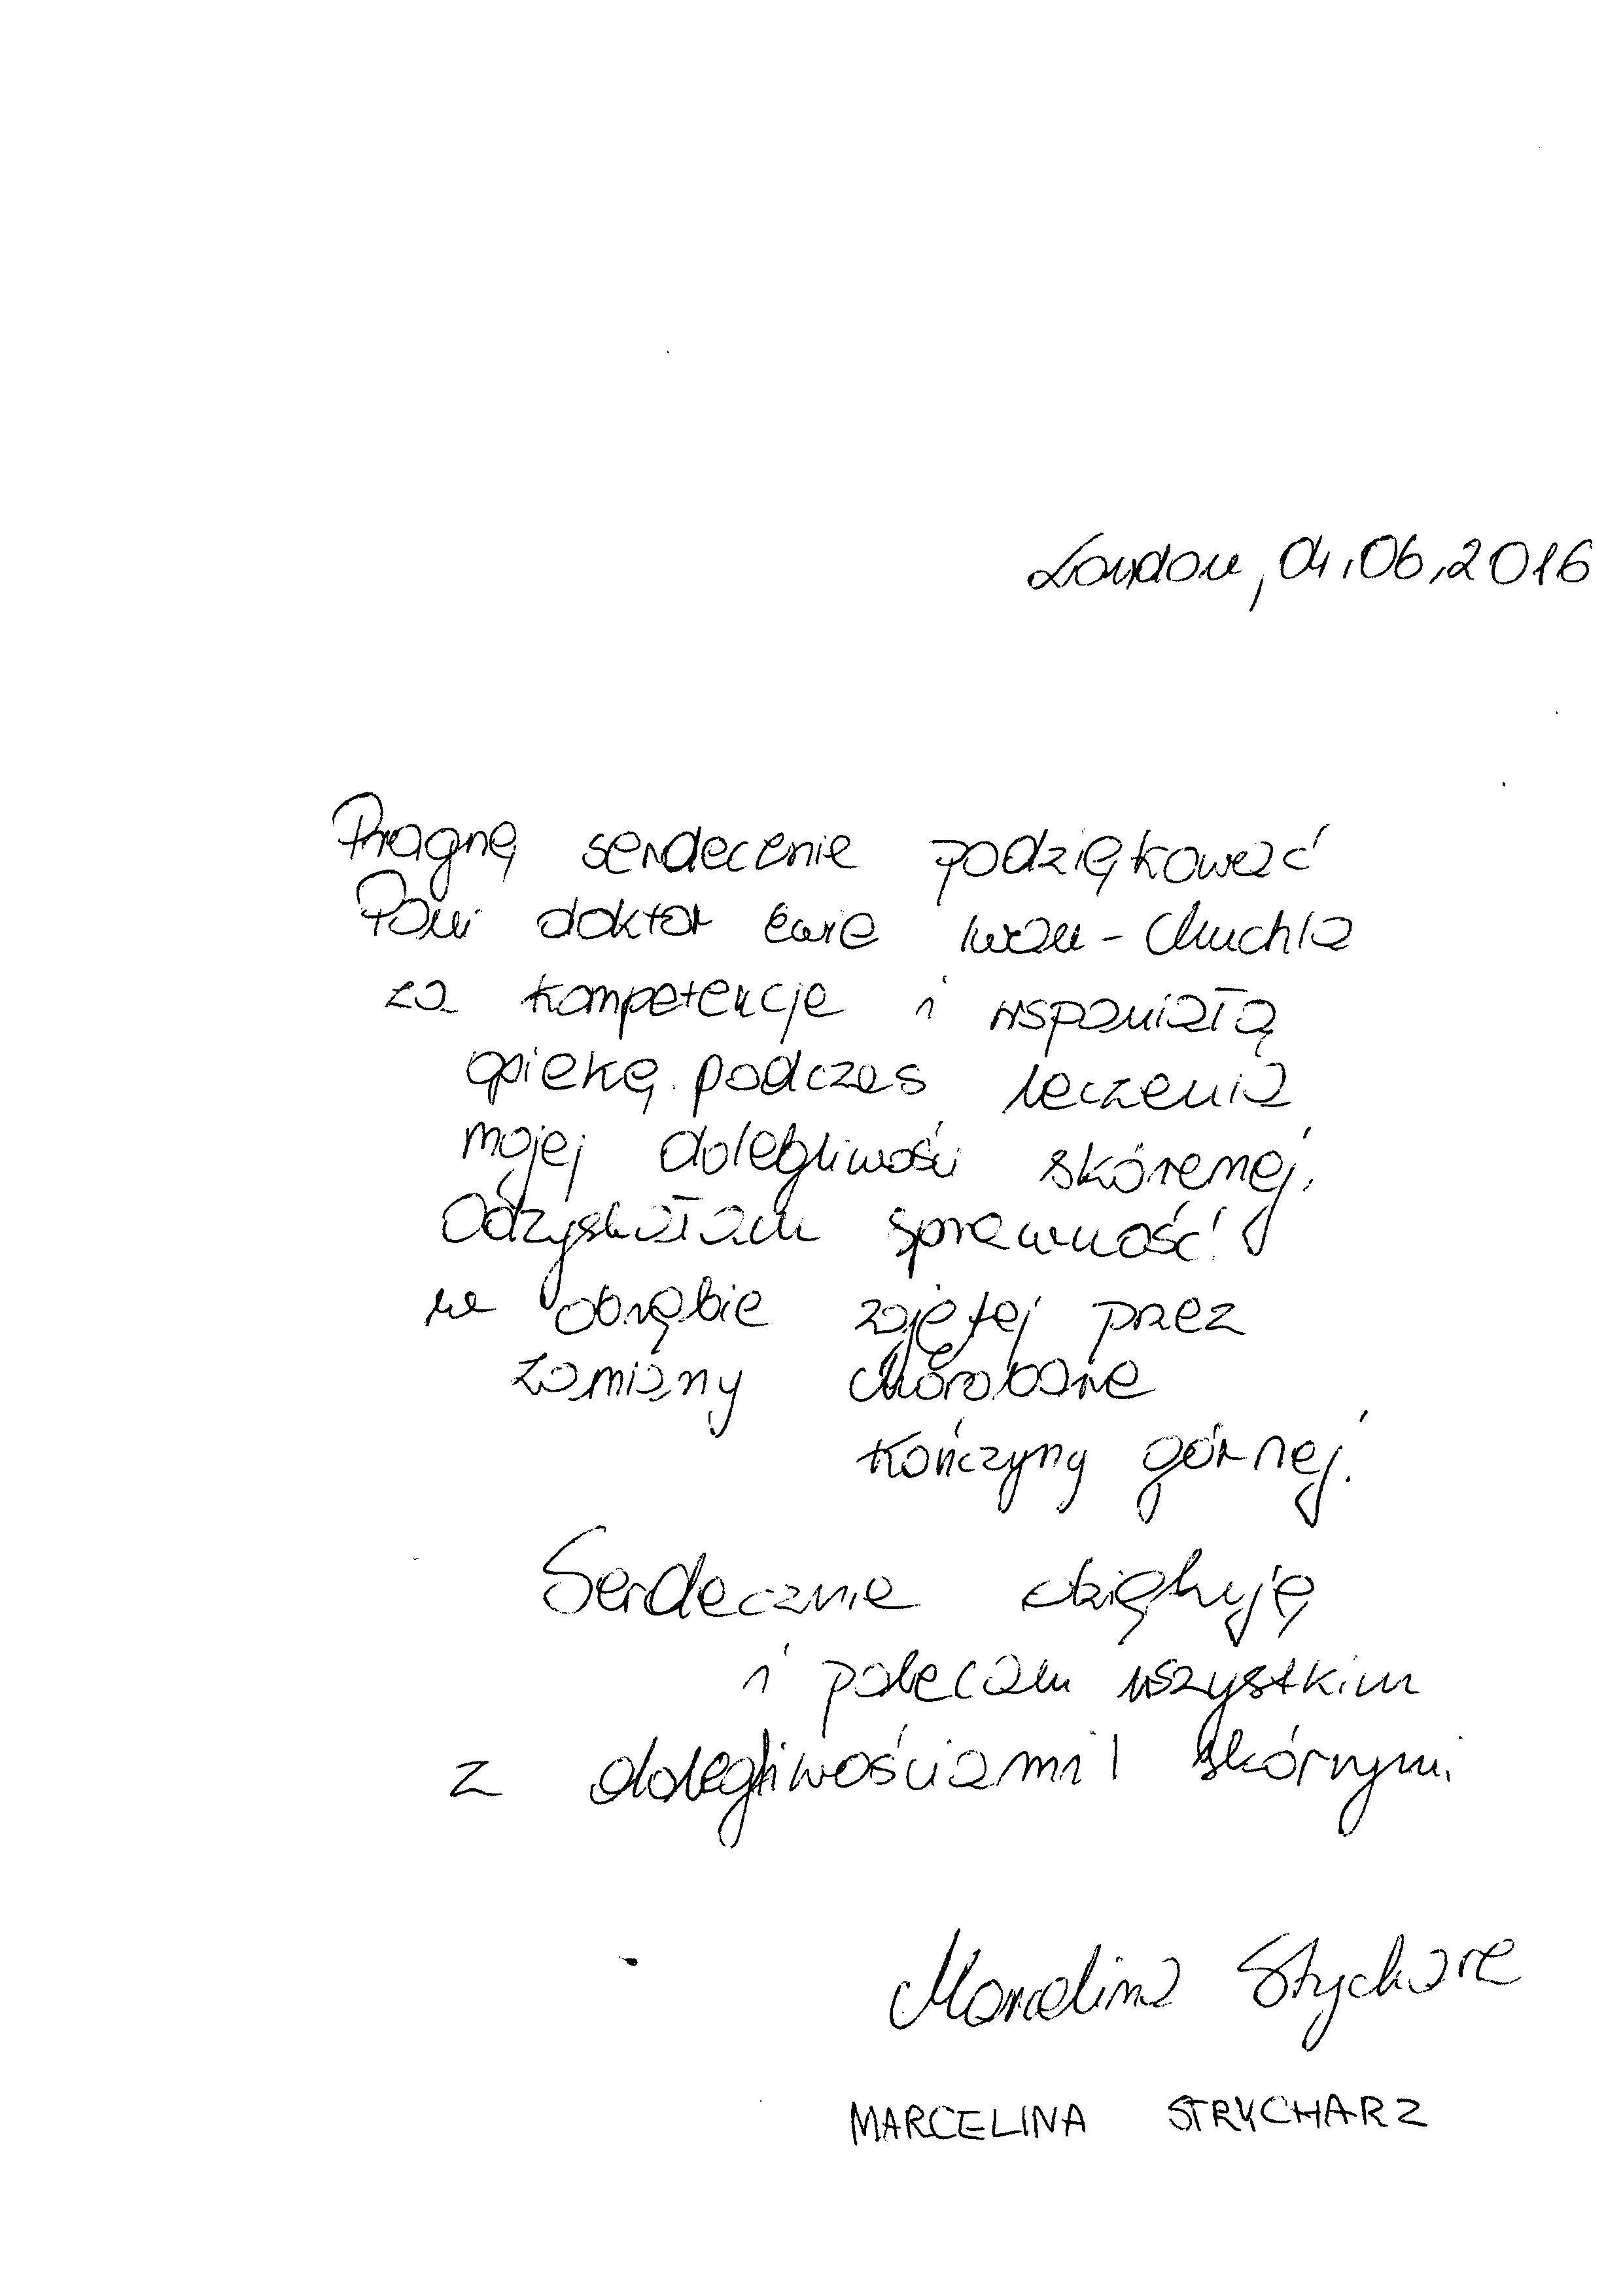 London, 04.06.2016
Pragnę serdecznie podziękować
Pani doktor Ewie Iwan-Chuchla
za kompetencje i wspaniałą
opiekę podczas leczenia
mojej dolegliwości skórnej.
Odzyskałam sprawność
w obrębie zajętej przez
zmiany chorobowe
kończyny górnej.
Serdecznie dziękuję
i polecam wszystkim
z dolegliwościami skórnymi
Marcelina Strycharz
MARCELINA STRYCHARZ